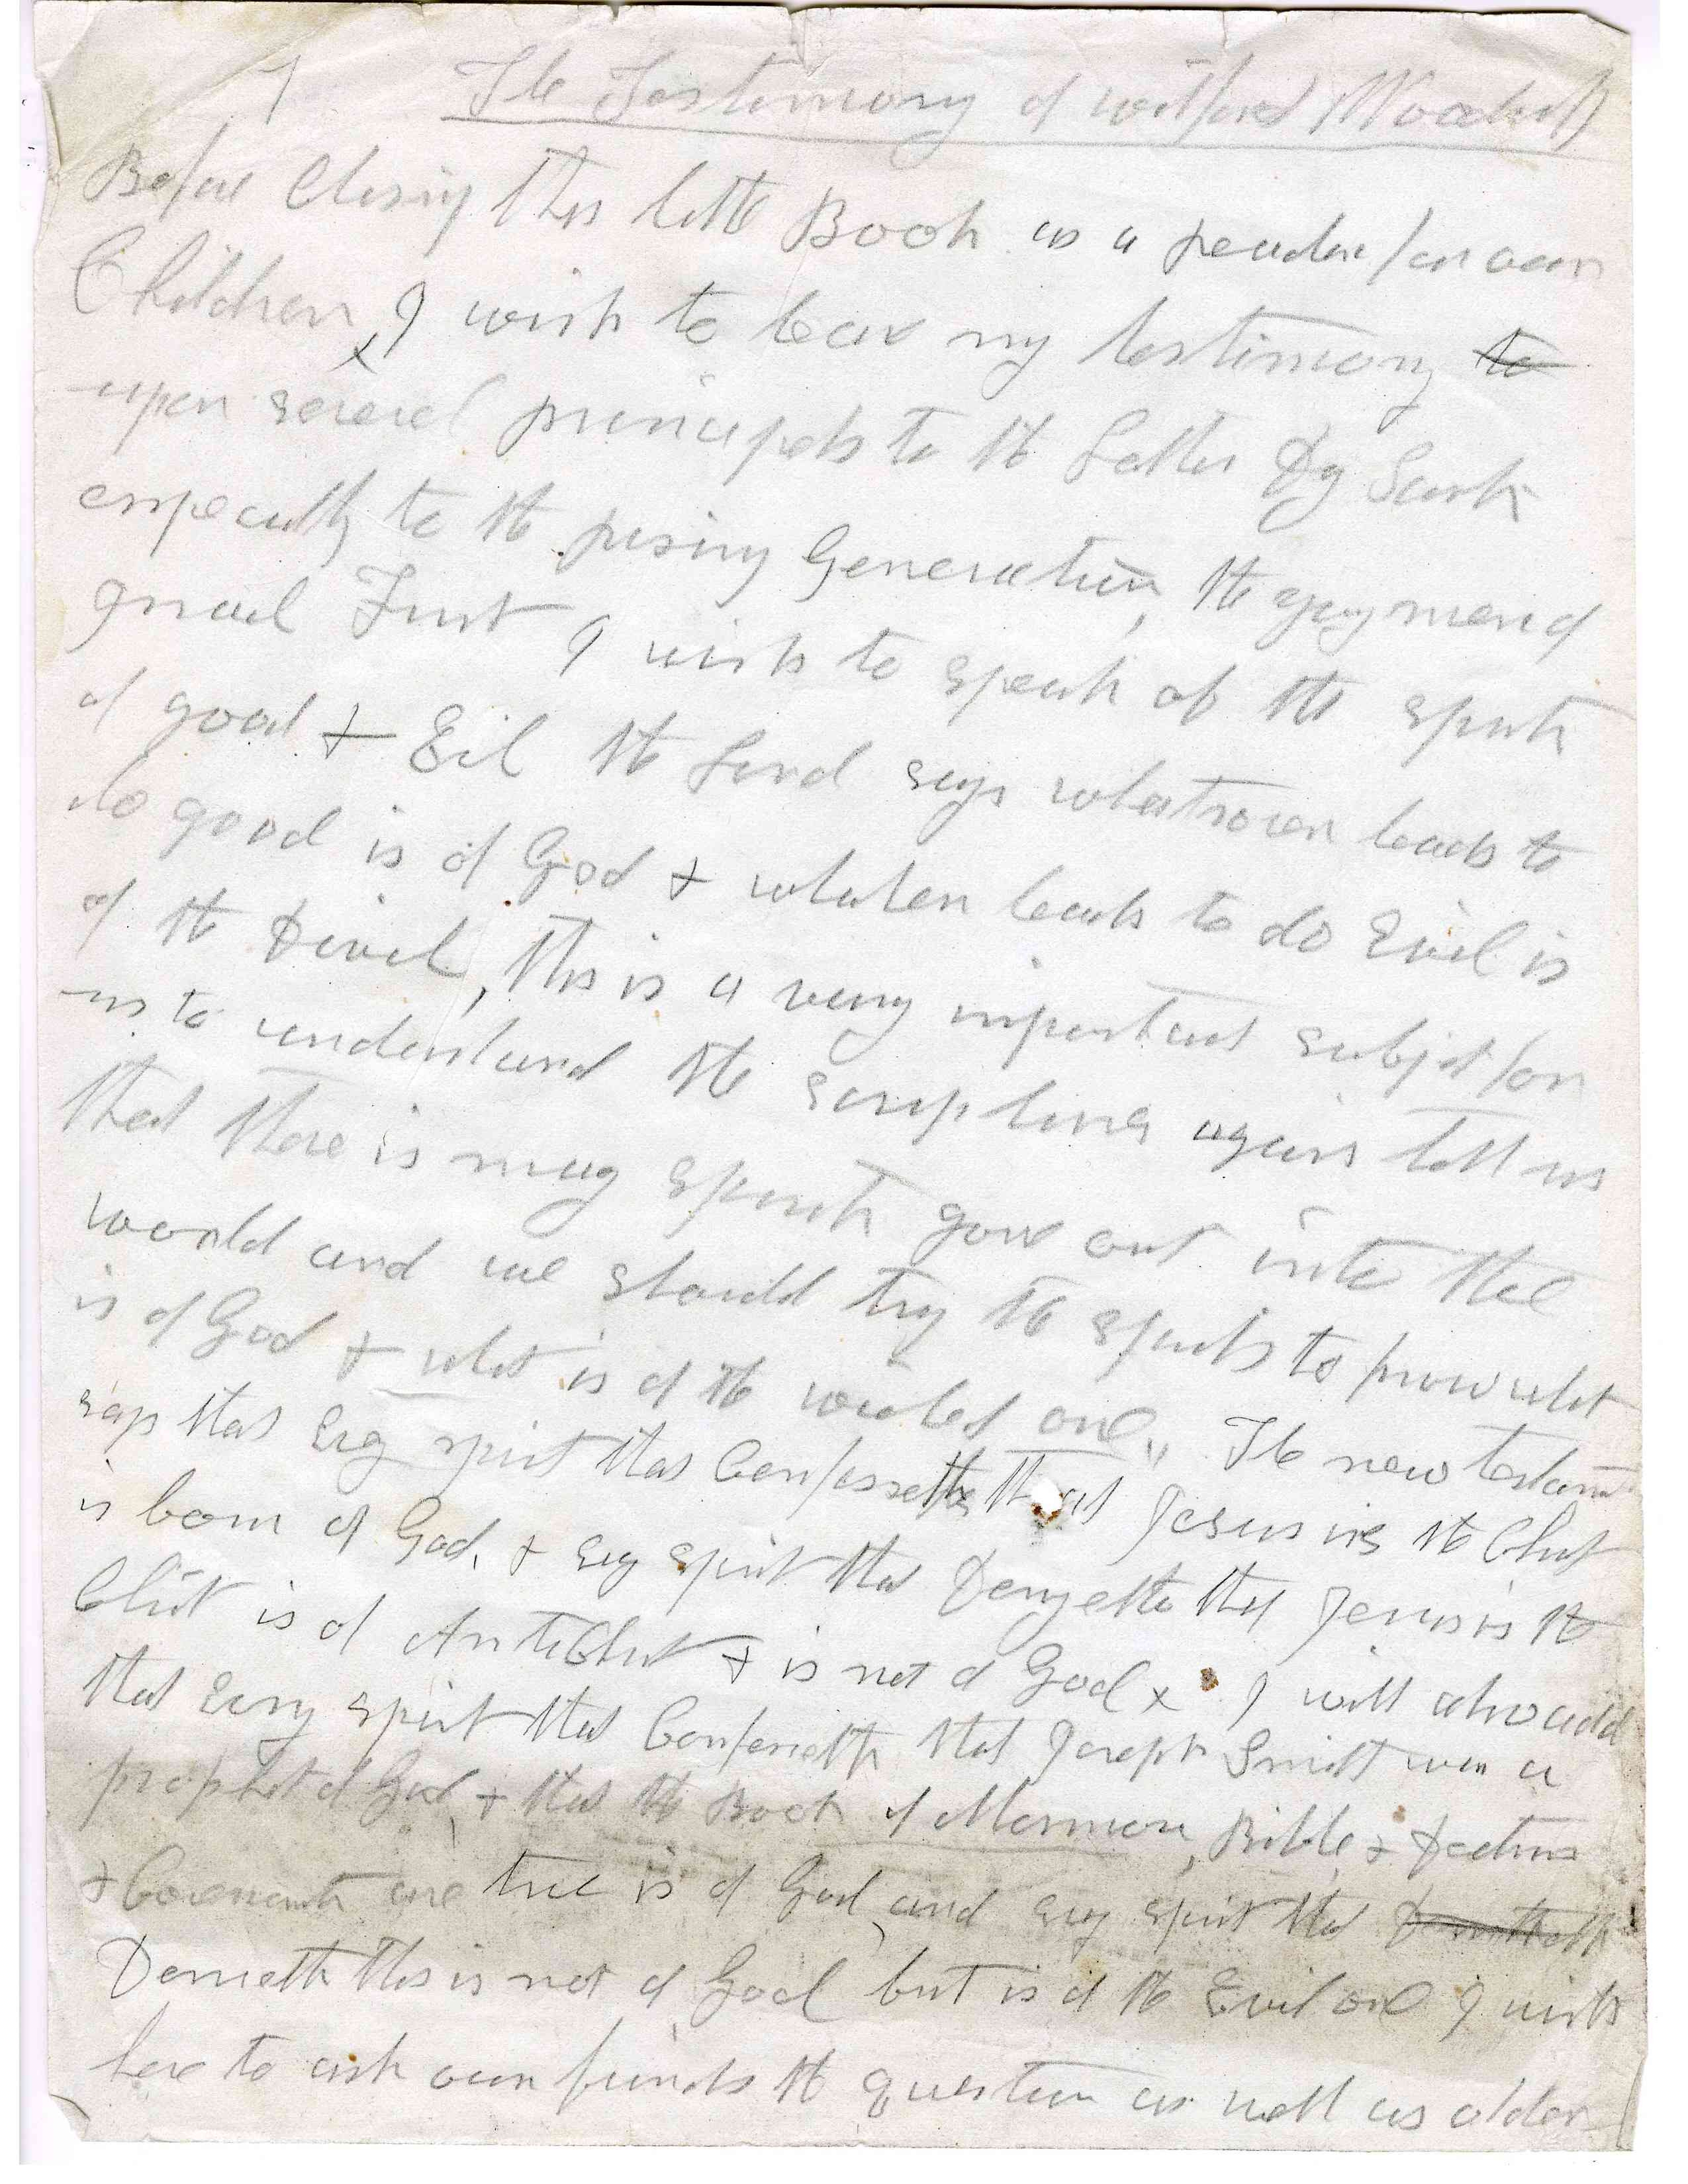 1 The Testimony of wilford Woodruff
Before Closing this little Book as a reader for our
Children, I wish to bear my testimony to
upon several principels to the Latter Day Saints
especially to the rising Generation, the young men of
Israel First I wish to speak of the spirits
of good & Evil the Lord says whatsoever leads to
do good is of God & whatever leads to do Evil is
of the Devil, this is a very important subject for
us to understand the scriptures again tell us
that there is many spirits gone out into the
world and we should try the spirits to prove what
is of God & what is of the wicked one" The new testam
says that Evry spirit that Confesseth that Jesus is the Christ
is born of God, & evry spirit that Denyeth that Jesus is the
Christ is of AntiChrist & is not of God x I will also add
that Evry spirit that Confesseth that Joseph Smith was a
prophet of God, & that the Book of Mormon, Bible & Doctrine
& Covenants are true is of God, and evry spirit that
Denieth this is not of God but is of the Evil one I wish
here to ask our friends the question as well as older